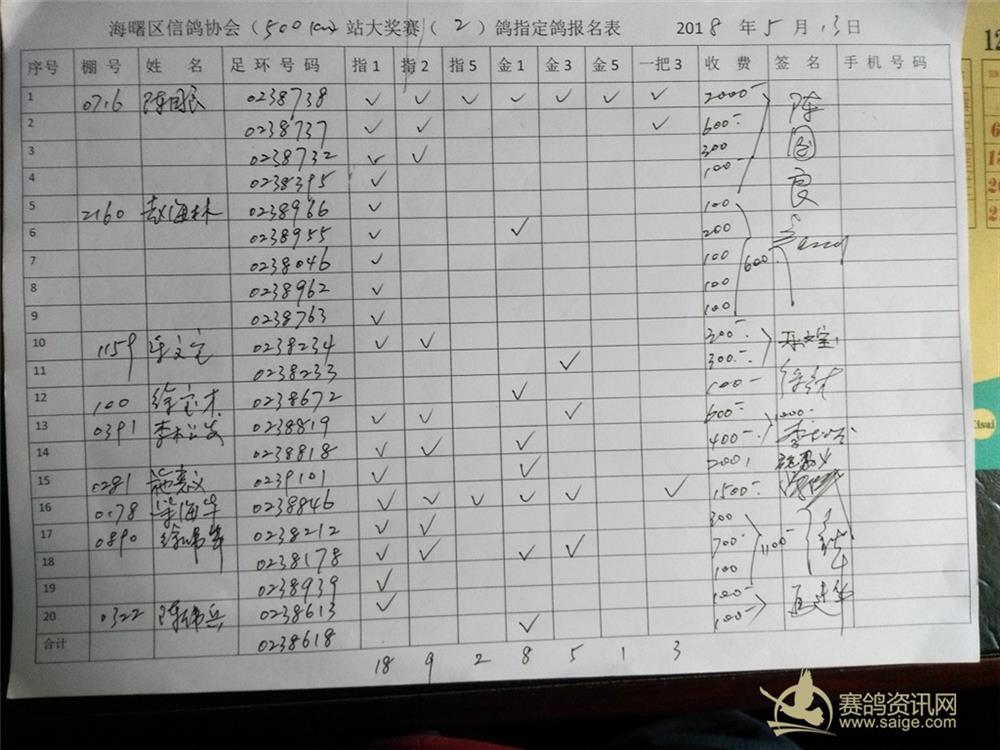 海曙区信鸽协会（500km）站大奖赛（2）鸽指定鸽报名表 2018 年 5 月 13 日
序号 棚号 姓 名 足环号码 指1 指2 指5 金1 金3 金5 一把3 收 费 签 名 手机号码
1 0716 陈国良 0238738 ✓ ✓ ✓ ✓ ✓ ✓ ✓ 2000- 陈国良
2 0238737 ✓ ✓ ✓ 600-
3 0238732 ✓ ✓ 300
4 0238395 ✓ 100-
5 2160 赵海林 0238966 ✓ 100
6 0238955 ✓ ✓ 200
7 0238046 ✓ 100 600
8 0238962 ✓ 100
9 0238763 ✓ 100
10 1159 乐文宝 0238234 ✓ ✓ 300- 乐文宝
11 0238233 ✓ 300-
12 100 徐宝木 0238672 ✓ 100-
13 0391 0238819 ✓ ✓ ✓ 600- 1000-
14 0238818 ✓ ✓ ✓ 400-
15 0281 施惠义 0239101 ✓ ✓ 200 施惠义
16 0178 梁海华 0238846 ✓ ✓ ✓ ✓ ✓ ✓ 1500-
17 0890 0238212 ✓ ✓ 300
18 0238178 ✓ ✓ ✓ ✓ 700- 1100-
19 0238939 ✓ 100
20 0322 0238613 ✓ 100-
合计 0238618 ✓ 100-
18 9 2 8 5 1 3
赛鸽资讯网
www.saige.com